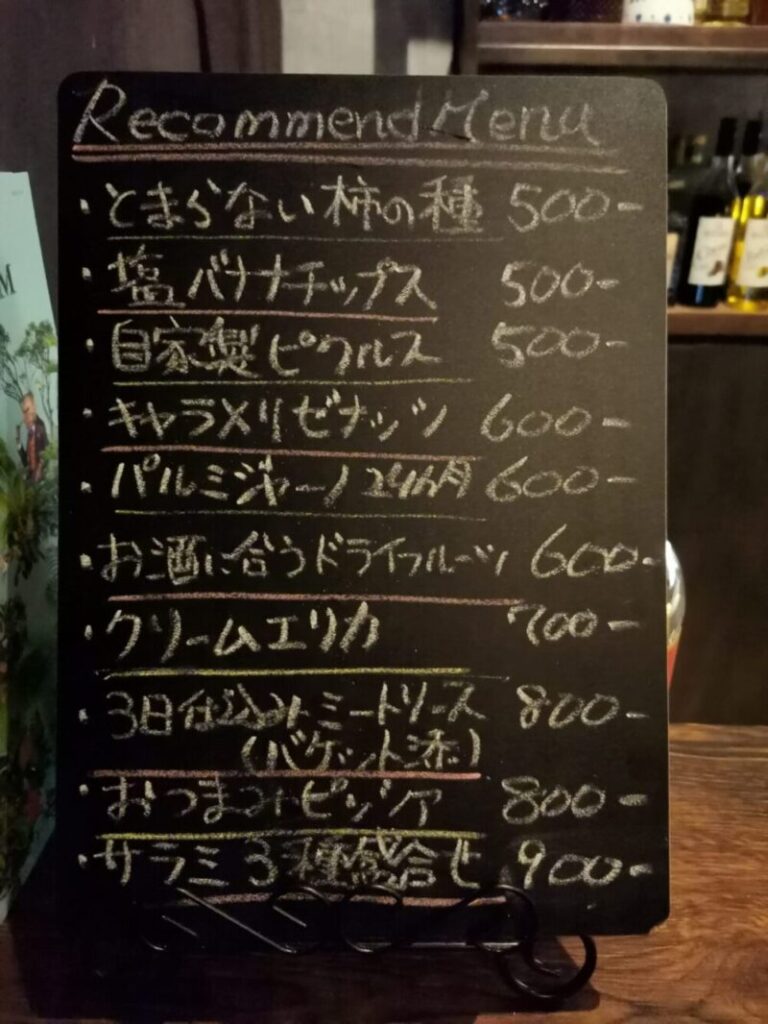 Recommend Menu
・とまらない柿の種 500-
・塩バナナチップス 500-
・自家製ピクルス 500-
・キャラメリゼナッツ 600-
・パルミジャーノ24ヵ月 600-
・お酒に合うドライフルーツ 600-
・クリームエリカ 700-
・3日仕込みミートソース 800-
(バゲット添)
・おつまみピッツア 800-
・サラミ3種盛合せ 900-
M